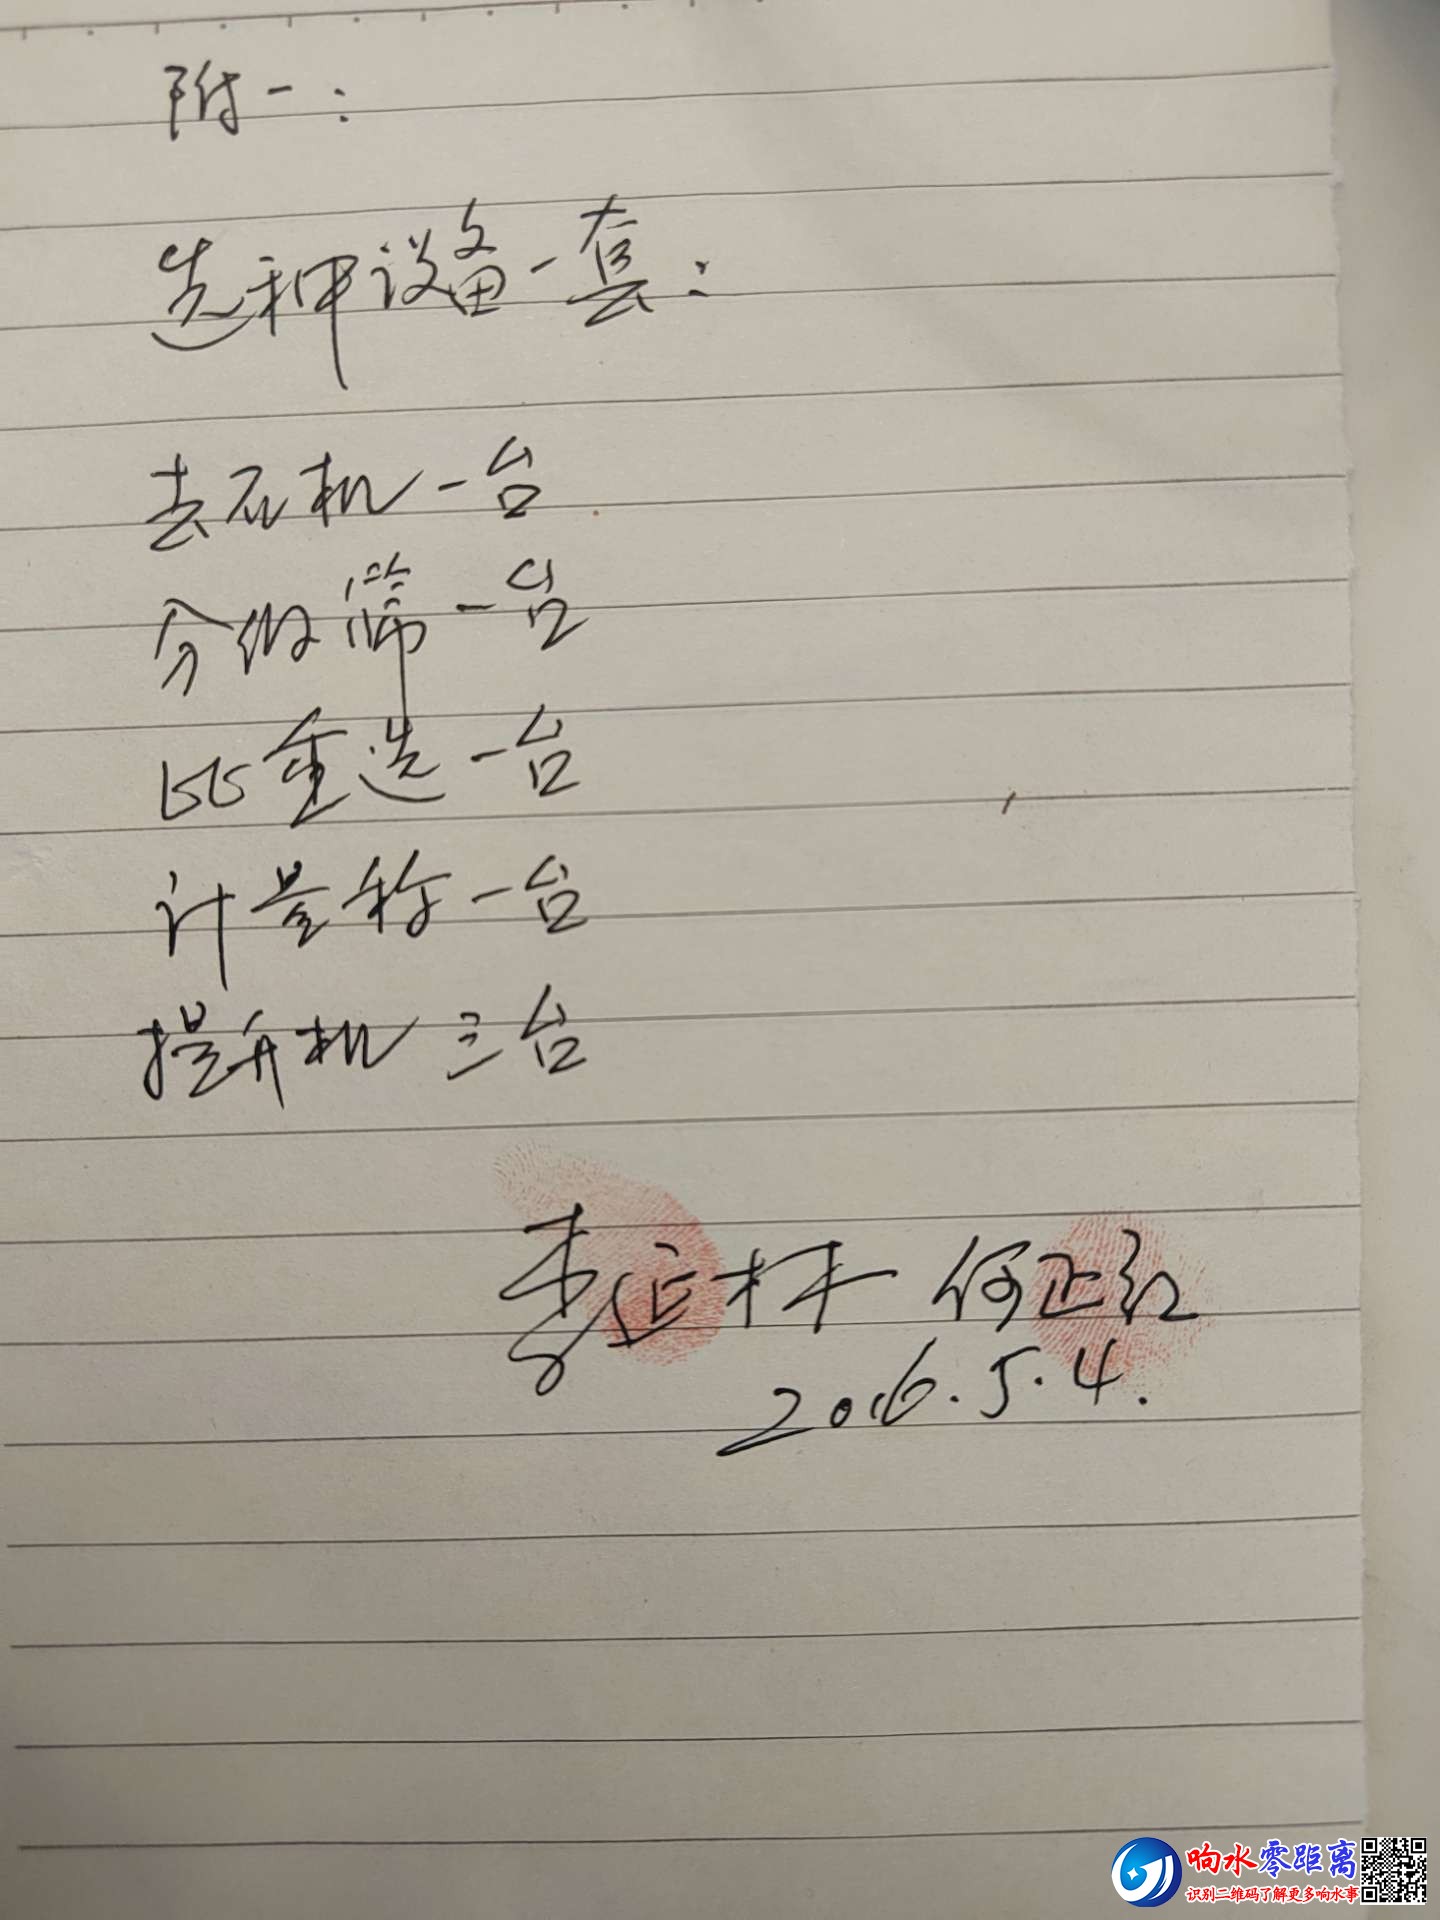 附一：
选种设备一套：
去石机一台
分级筛一台
比重选一台
计量称一台
提升机三台
李延林 何正红
2016.5.4.
响水零距离
识别二维码了解更多响水事